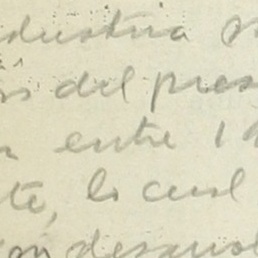 dustria
del pres
entre 1
te, lo cual
desarrol